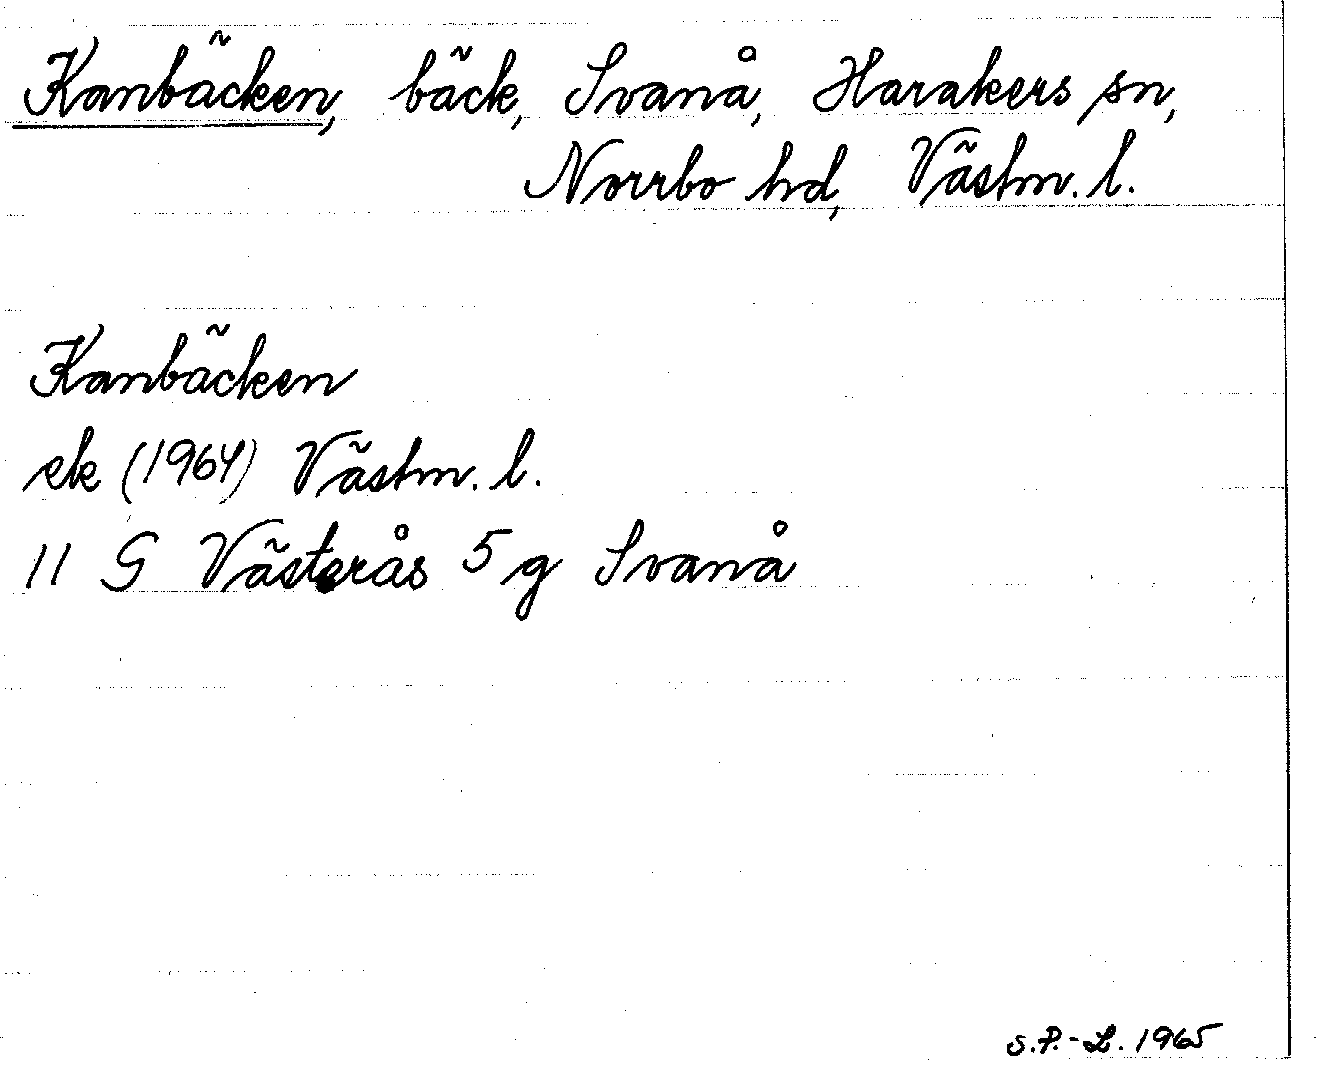 Kanbäcken, bäck, Svanå, Harakers sn,
Norrbo hd, Västm. l.
Kanbäcken
ek (1964) Västm. l.
11 G Västerås 5 g Svanå
S.P.-L. 1965